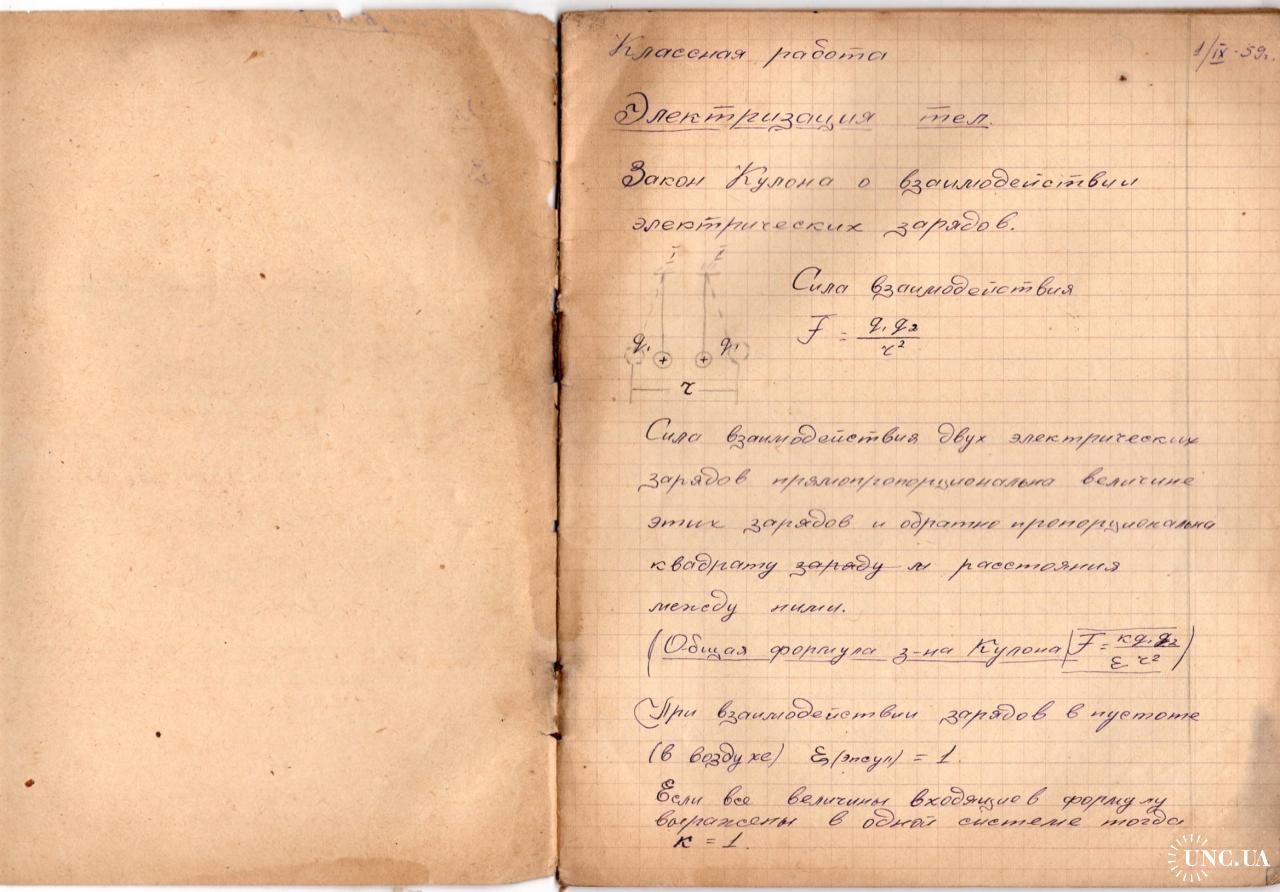 Классная работа 1/IX-59г.
Электризация тел.
Закон Кулона о взаимодействии
электрических зарядов.
Сила взаимодействия
F = q₁ q₂ / r²
q₁ + + q₁
r
Сила взаимодействия двух электрических
зарядов прямопропорциональна величине
этих зарядов и обратно пропорциональна
квадрату заряду м расстояния
между ними.
(Общая формула з-на Кулона F = кq₁q₂ / ε r²)
При взаимодействии зарядов в пустоте
(в воздухе) ε (эпсул) = 1.
Если все величины входящие в формулу
выражены в одной системе тогда
к = 1.
UNC.UA